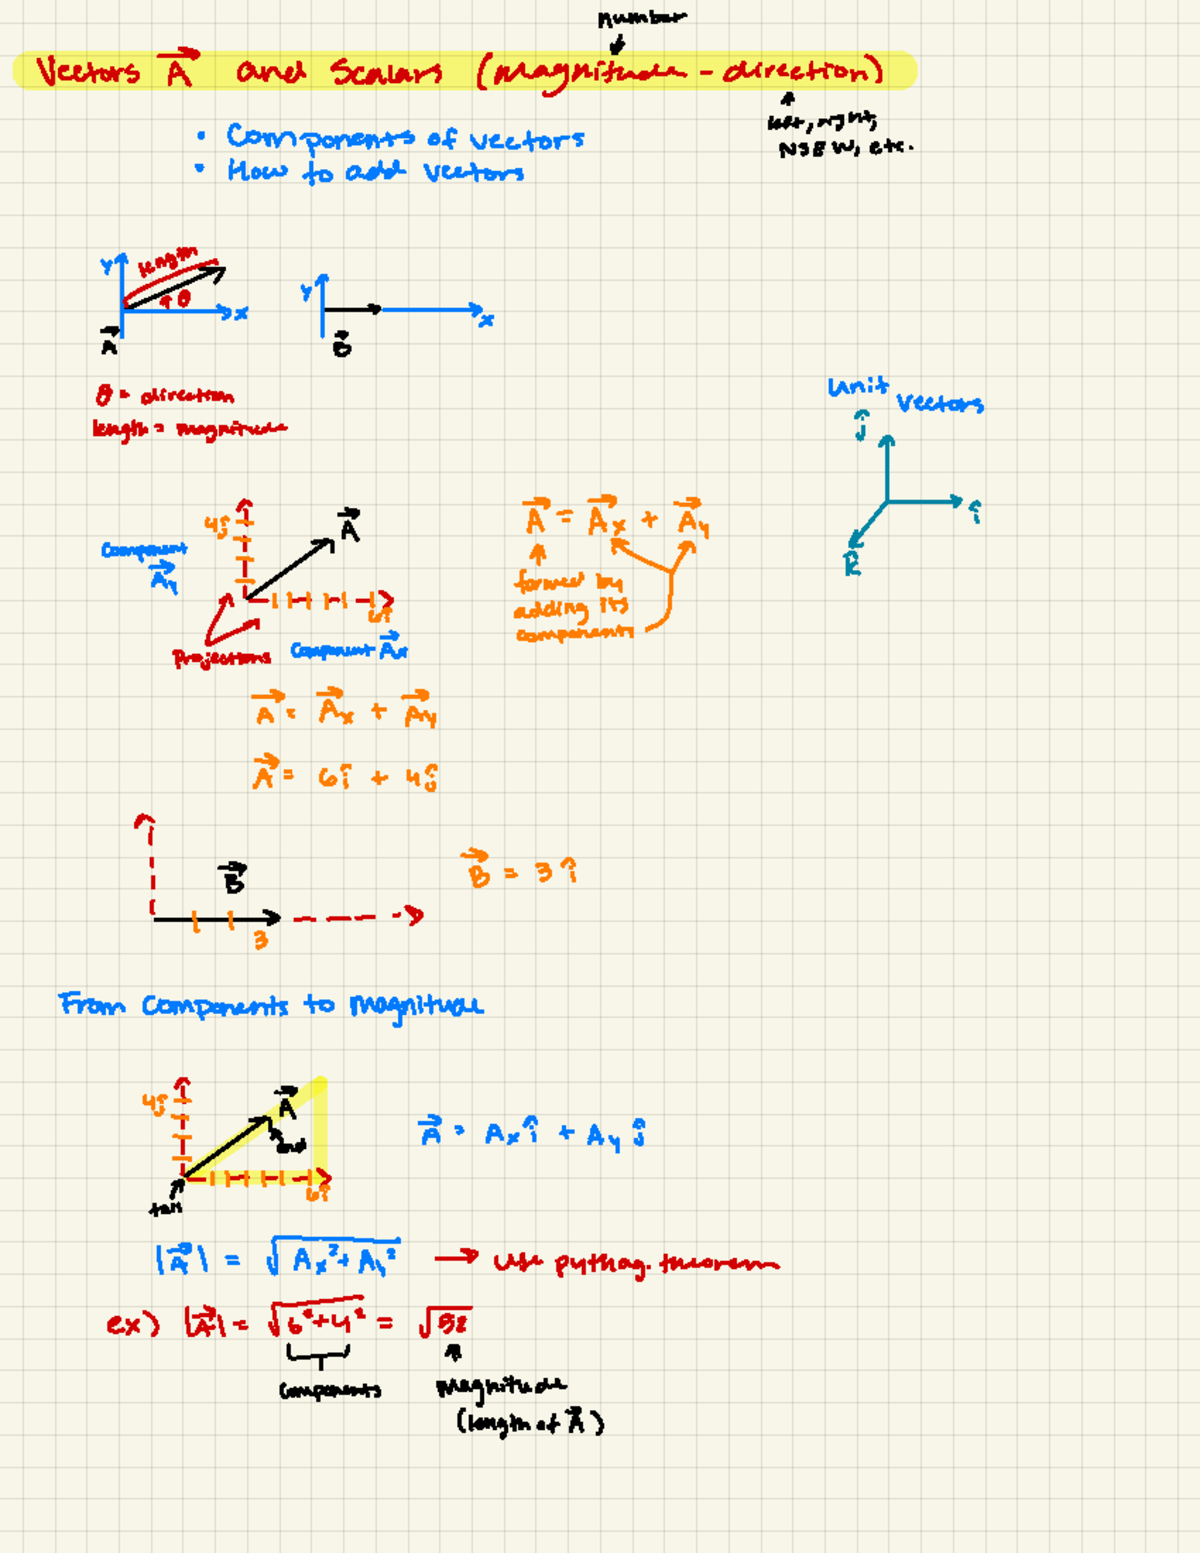 number
Vectors A and Scalars (magnitude - direction)
left, right,
NSEW, etc.
• Components of vectors
• How to add vectors
y
length
θ
x
A
y
x
B
θ = direction
length = magnitude
Unit
Vectors
ĵ
î
k̂
4ĵ
A
Component
Ay
6î
Projections
Component Ax
A = Ax + Ay
formed by
adding its
components
A = Ax + Ay
A = 6î + 4ĵ
B
3
B = 3î
From Components to Magnitude
4ĵ
A
end
6î
tail
A = Axî + Ayĵ
|A| = √Ax²+Ay² → use pythag. theorem
ex) |A| = √6²+4² = √52
components
magnitude
(length of A)